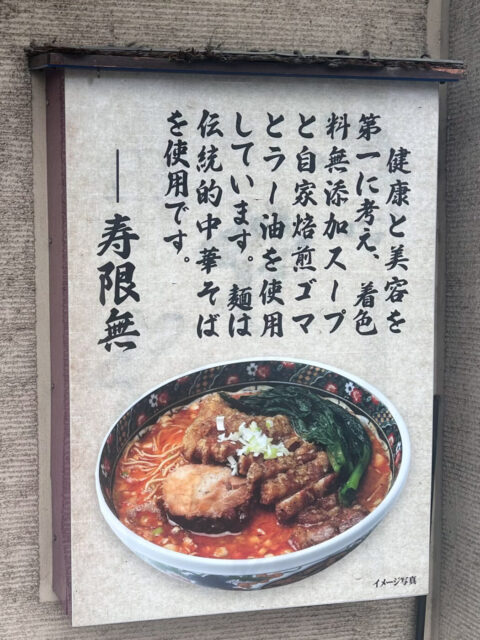 健康と美容を
第一に考え、着色
料無添加スープ
と自家焙煎ゴマ
とラー油を使用
しています。麺は
伝統的中華そば
を使用です。
―寿限無
イメージ写真